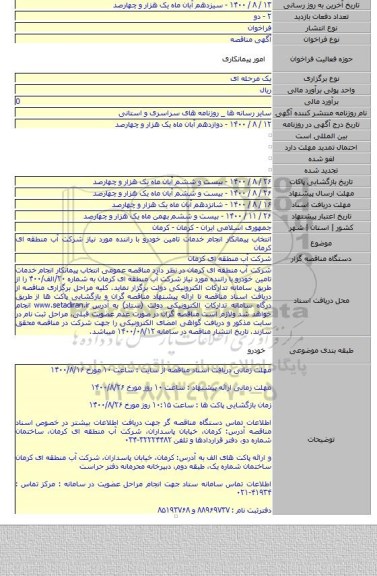 تاریخ آخرین به روز رسانی
۱۳ / ۸ / ۱۴۰۰ - سیزدهم آبان ماه یک هزار و چهارصد
تعداد دفعات بازدید
۲ - دو
نوع انتشار
فراخوان
نوع فراخوان
آگهی مناقصه
حوزه فعالیت فراخوان
امور پیمانکاری
نوع برگزاری
یک مرحله ای
واحد پولی برآورد مالی
ریال
برآورد مالی
0
نام روزنامه منتشر کننده آگهی
سایر رسانه ها _ روزنامه های سراسری و استانی
تاریخ درج آگهی در روزنامه
۱۲ / ۸ / ۱۴۰۰ - دوازدهم آبان ماه یک هزار و چهارصد
بین المللی است
احتمال تمدید مهلت دارد
لغو شده
تجدید شده
تاریخ بازگشایی پاکات
۲۶ / ۸ / ۱۴۰۰ - بیست و ششم آبان ماه یک هزار و چهارصد
مهلت ارسال پیشنهاد
۲۶ / ۸ / ۱۴۰۰ - بیست و ششم آبان ماه یک هزار و چهارصد
مهلت دریافت اسناد
۱۶ / ۸ / ۱۴۰۰ - شانزدهم آبان ماه یک هزار و چهارصد
تاریخ اعتبار پیشنهاد
۲۶ / ۱۱ / ۱۴۰۰ - بیست و ششم بهمن ماه یک هزار و چهارصد
کشور | استان | شهر
جمهوری اسلامی ایران - کرمان - کرمان
موضوع
انتخاب پیمانکار انجام خدمات تامین خودرو با راننده مورد نیاز شرکت آب منطقه ای
کرمان
دستگاه مناقصه گزار
شرکت آب منطقه ای کرمان
محل دریافت اسناد
شرکت آب منطقه ای کرمان در نظر دارد مناقصه عمومی انتخاب پیمانکار انجام خدمات
تامین خودرو با راننده مورد نیاز شرکت آب منطقه ای کرمان به شماره ۲۰/الف/۴۰۰ را از
طریق سامانه تدارکات الکترونیکی دولت برگزار نماید. کلیه مراحل برگزاری مناقصه از
دریافت اسناد مناقصه تا ارائه پیشنهاد مناقصه گران و بازگشایی پاکت ها از طریق
درگاه سامانه تدارکات الکترونیکی دولت (ستاد) به آدرس www.setadiran.ir انجام
خواهد شد ولازم است مناقصه گران در صورت عدم عضویت قبلی، مراحل ثبت نام در
سایت مذکور و دریافت گواهی امضای الکترونیکی را جهت شرکت در مناقصه محقق
سازند. تاریخ انتشار مناقصه در سامانه ۱۴۰۰/۰۸/۱۲ میباشد.
طبقه بندی موضوعی
خودرو
توضیحات
مهلت زمانی دریافت اسناد مناقصه از سایت : ساعت ۱۰ مورخ ۱۴۰۰/۸/۱۶
مهلت زمانی ارائه پیشنهاد : ساعت ۱۰ روز مورخ ۱۴۰۰/۸/۲۶
زمان بازگشایی پاکت ها : ساعت ۱۰:۱۵ روز مورخ ۱۴۰۰/۸/۲۶
اطلاعات تماس دستگاه مناقصه گر جهت دریافت اطلاعات بیشتر در خصوص اسناد
مناقصه آدرس: کرمان، خیابان پاسداران، شرکت آب منطقه ای کرمان، ساختمان
شماره دو، دفتر قراردادها و تلفن ۳۲۲۲۴۴۸۲-۰۳۴
و ارائه پاکت های الف به آدرس: کرمان، خیابان پاسداران، شرکت آب منطقه ای کرمان
ساختمان شماره یک، طبقه دوم، دبیرخانه محرمانه دفتر حراست
اطلاعات تماس سامانه ستاد جهت انجام مراحل عضویت در سامانه : مرکز تماس :
۴۱۹۳۴-۰۲۱
دفترثبت نام : ۸۸۹۶۹۷۳۷ و ۸۵۱۹۳۷۶۸